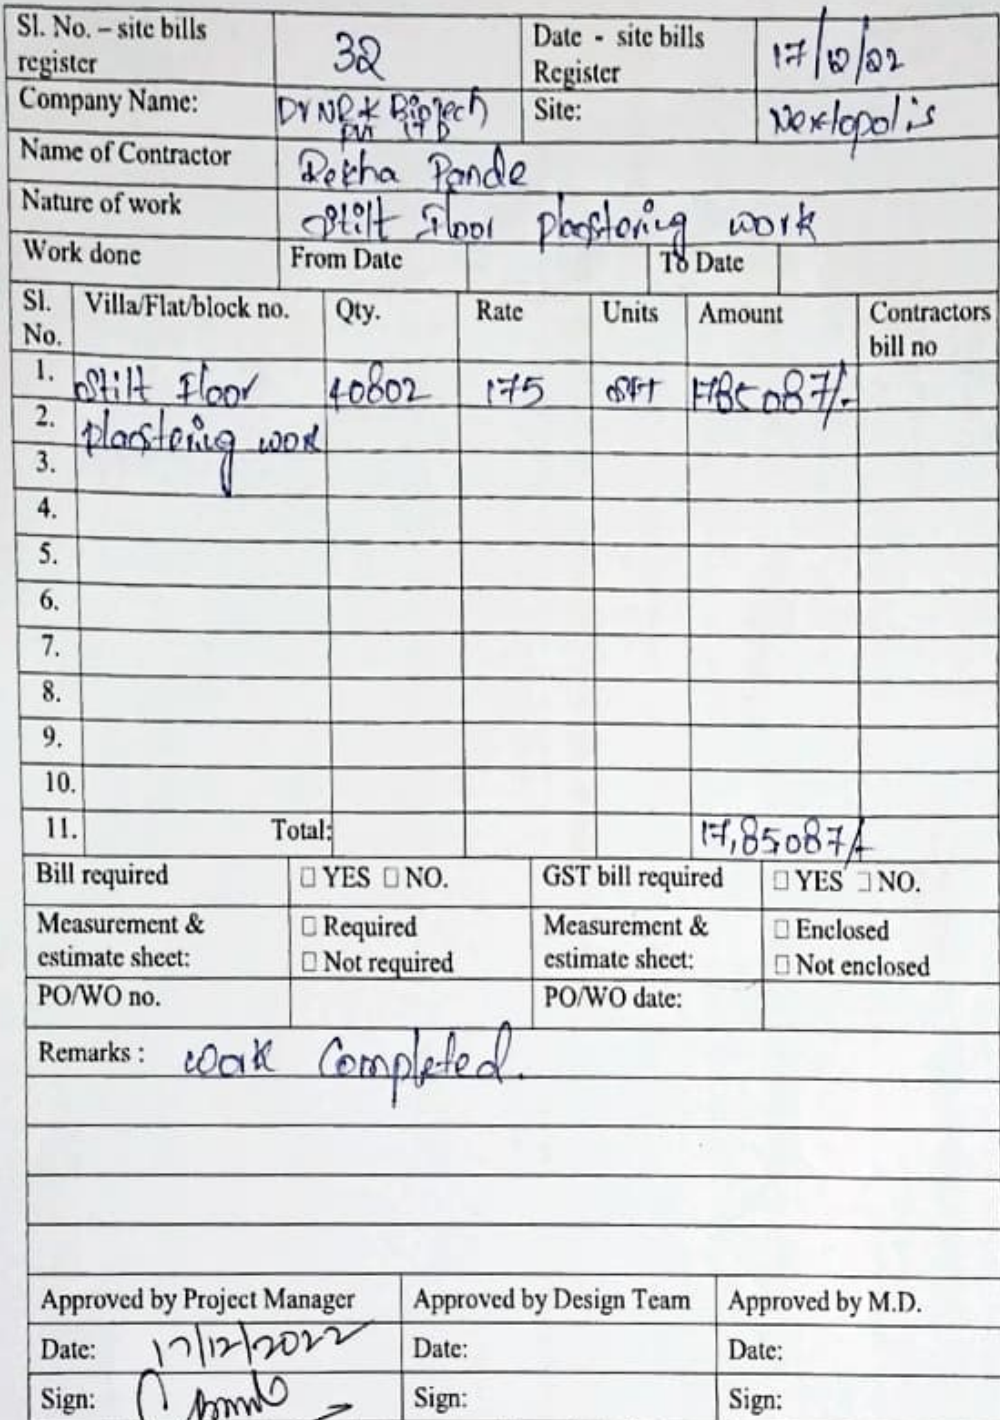 Sl. No. – site bills register 32 Date - site bills Register 17/12/22
Company Name: Dr NRK Biotech Pvt LTD Site: Nextopolis
Name of Contractor Rekha Pande
Nature of work Stilt Floor plastering work
Work done From Date To Date
Sl. No. Villa/Flat/block no. Qty. Rate Units Amount Contractors bill no
1. Stilt Floor 40802 175 SFT 1785087/-
2. plastering work
3.
4.
5.
6.
7.
8.
9.
10.
11. Total: 17,85087/-
Bill required □ YES □ NO. GST bill required □ YES □ NO.
Measurement & estimate sheet: □ Required □ Not required Measurement & estimate sheet: □ Enclosed □ Not enclosed
PO/WO no. PO/WO date:
Remarks : work Completed.
Approved by Project Manager Approved by Design Team Approved by M.D.
Date: 17/12/2022 Date: Date:
Sign: Sign: Sign: